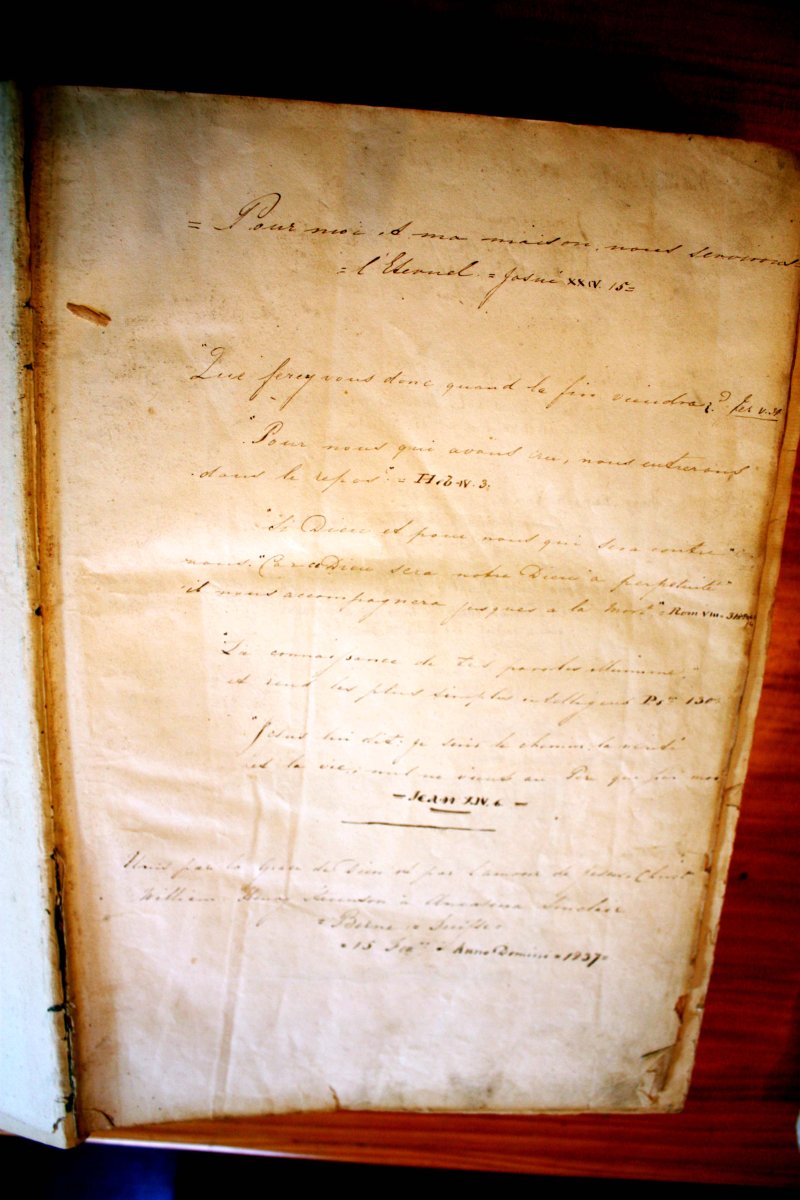 = Pour moi et ma maison, nous servirons
= l'Eternel = Josué XXIV. 15 =
"Que ferez vous donc quand la fin viendra?" Jer V. 31
"Pour nous qui avons cru, nous entrerons
dans le repos" = Heb IV. 3.
"Si Dieu est pour nous qui sera contre
nous." "Car ce Dieu sera notre Dieu a perpetuité"
il nous accompagnera jusques a la mort" = Rom VIII. 31
"La connaissance de tes paroles illumine,
et rend les plus simples intelligens Ps. 130
"Jesus lui dit: je suis le chemin, la verité
et la vie; nul ne vient au Père que par moi
– Jean XIV. 6 –
Unis par la Grace de Dieu et par l'amour de Jesus-Christ
William Henry à Sinclair
= Berne = Suisse
= 15 = Anno Domini = 1837 =